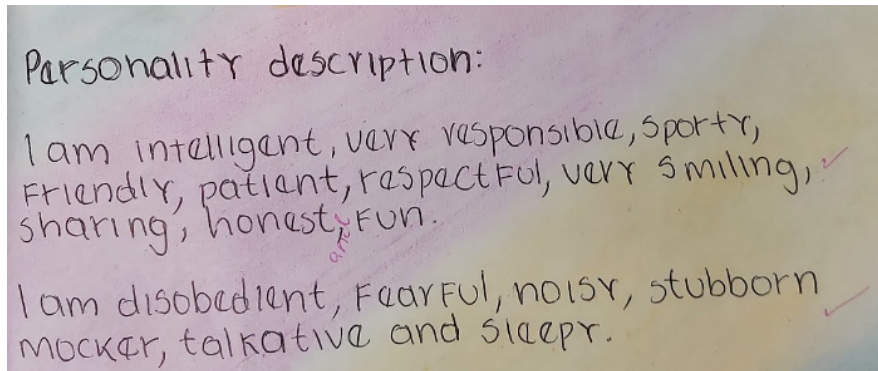 Personality description:
I am intelligent, very responsible, sporty,
Friendly, patient, respectful, very smiling,
sharing, honest, and fun.
I am disobedient, fearful, noisy, stubborn
mocker, talkative and sleepy.